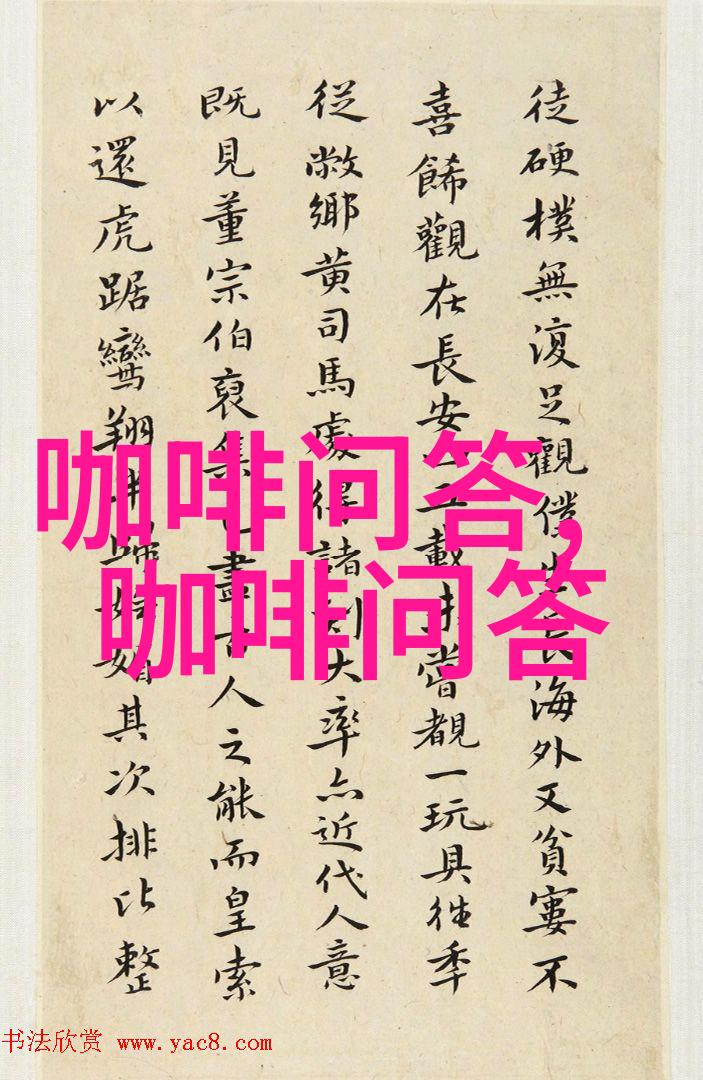 徒硬樸無復足觀僕生長海外又貧窶不
喜餙觀在長安載嘗覩一玩具往季
從敝鄉黄司馬處得諸刻大率亦近代人意
既見董宗伯裒集已盡古人之能而皇索
以還虎踞鸞翔媚其次排比整
咖啡问答,
咖啡问答
书法欣赏 www.yac8.com